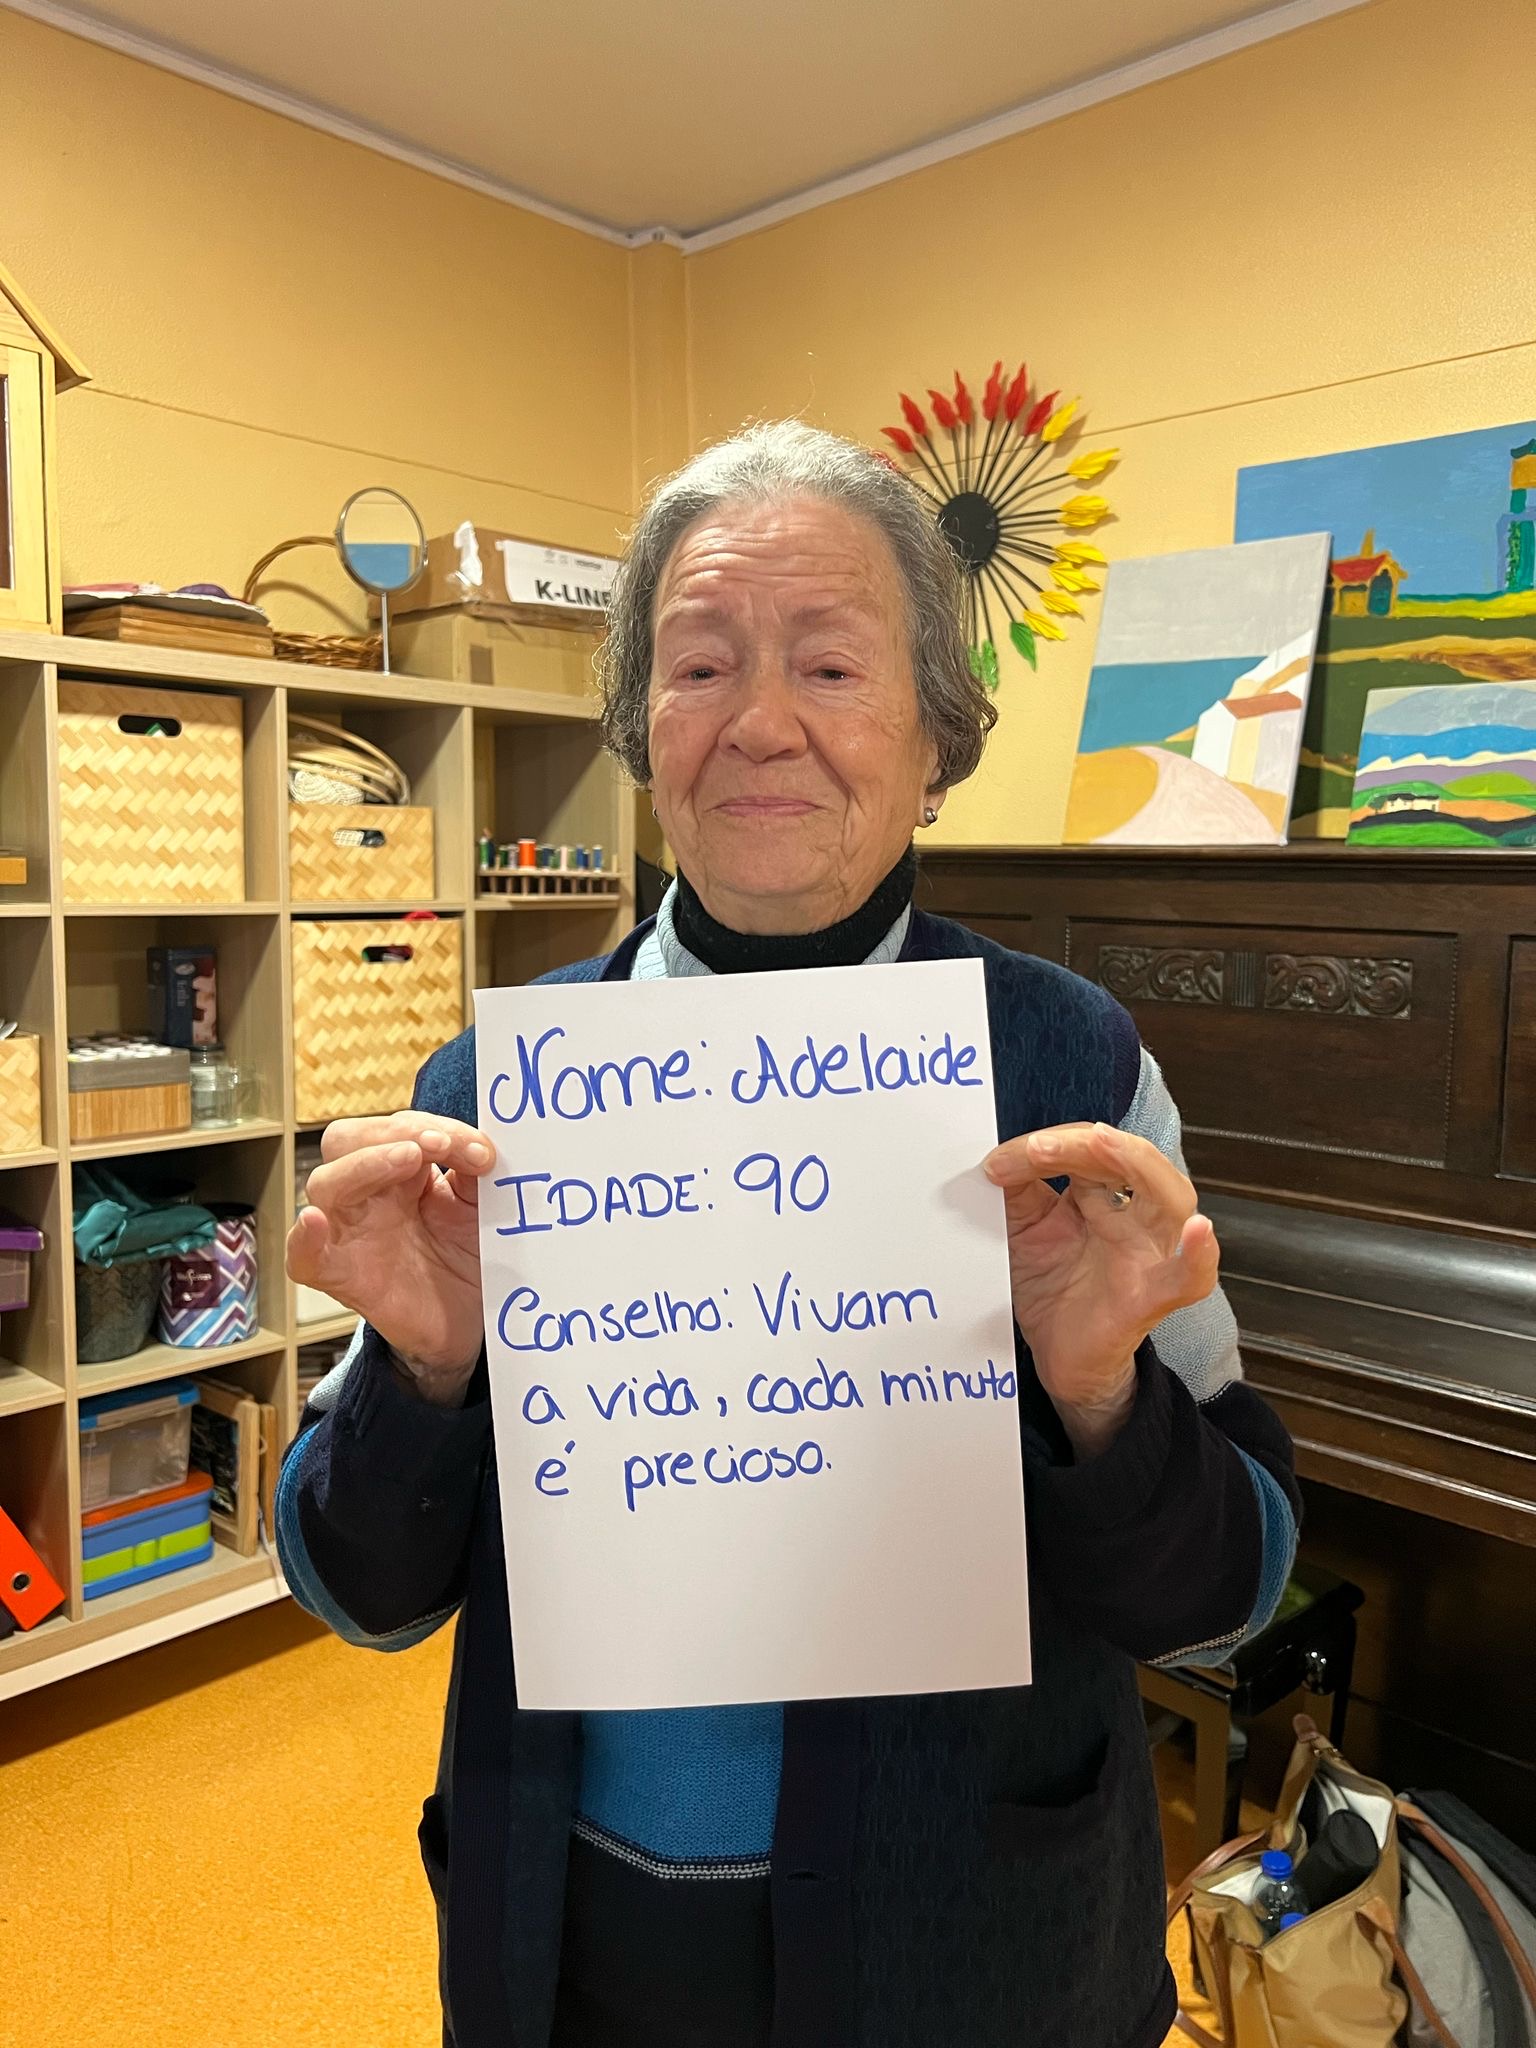 K-LINE
Nome: Adelaide
IDADE: 90
Conselho: Vivam
a vida, cada minuto
é precioso.